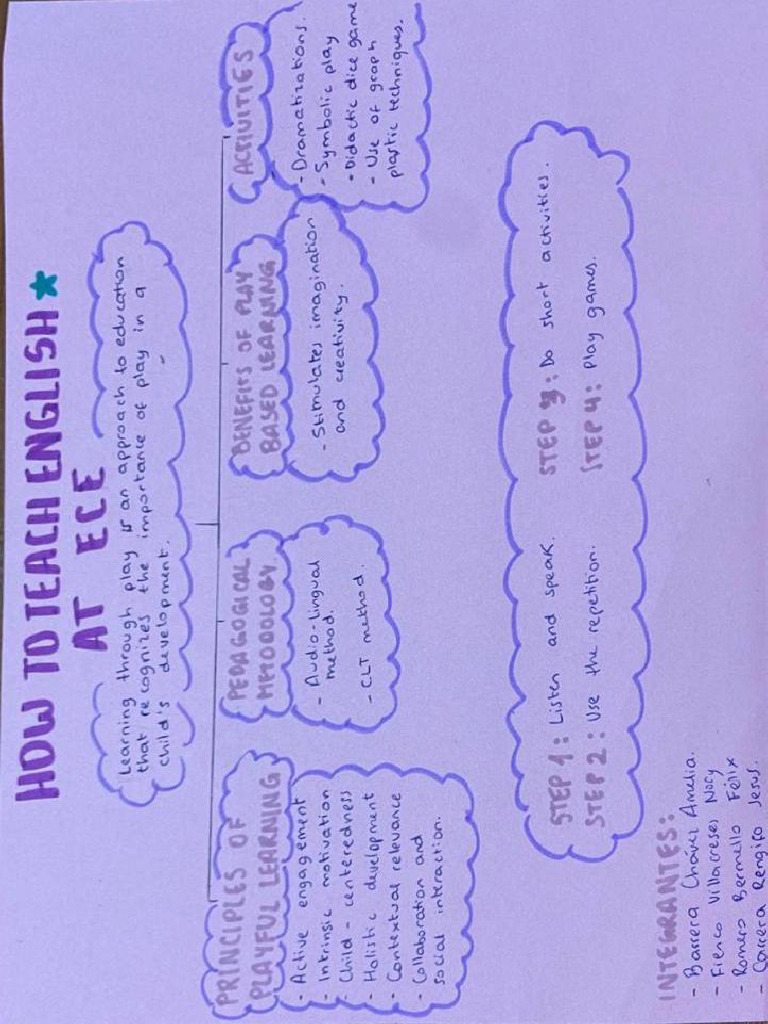 HOW TO TEACH ENGLISH
AT ECE
Learning through play is an approach to education
that recognizes the importance of play in a
child's development.
PRINCIPLES OF
PLAYFUL LEARNING
- Active engagement
- Intrinsic motivation
- Child-centeredness
- Holistic development
- Contextual relevance
- Collaboration and
social interaction.
PEDAGOGICAL
METHODOLOGY
- Audio-lingual
method.
- CLT method.
BENEFITS OF PLAY
BASED LEARNING
- Stimulates imagination
and creativity.
ACTIVITIES
- Dramatizations.
- Symbolic play
- Didactic dice game
- Use of graph
plastic techniques.
STEP 1: Listen and speak.
STEP 2: Use the repetition.
STEP 3: Do short activities.
STEP 4: Play games.
INTEGRANTES:
- Barrera Chavez Amelia.
- Fienco Villacreses Nocy
- Romero Bermello Félix
- Carrera Rengifo Jesus.